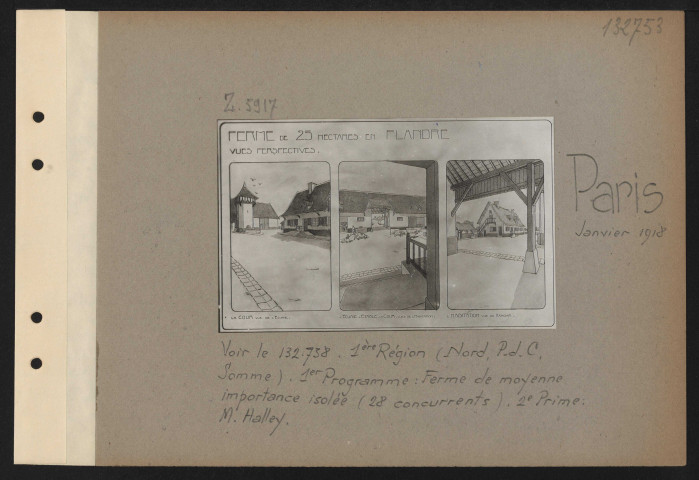 132753
Z. 5917
FERME DE 25 HECTARES EN FLANDRE
VUES PERSPECTIVES.
Paris
Janvier 1918
LA COUR
HABITATION
Voir le 132.738. 1ère Région (Nord, P.d.C,
Somme). 1er Programme : Ferme de moyenne
importance isolée (28 concurrents). 2e Prime :
M. Halley.